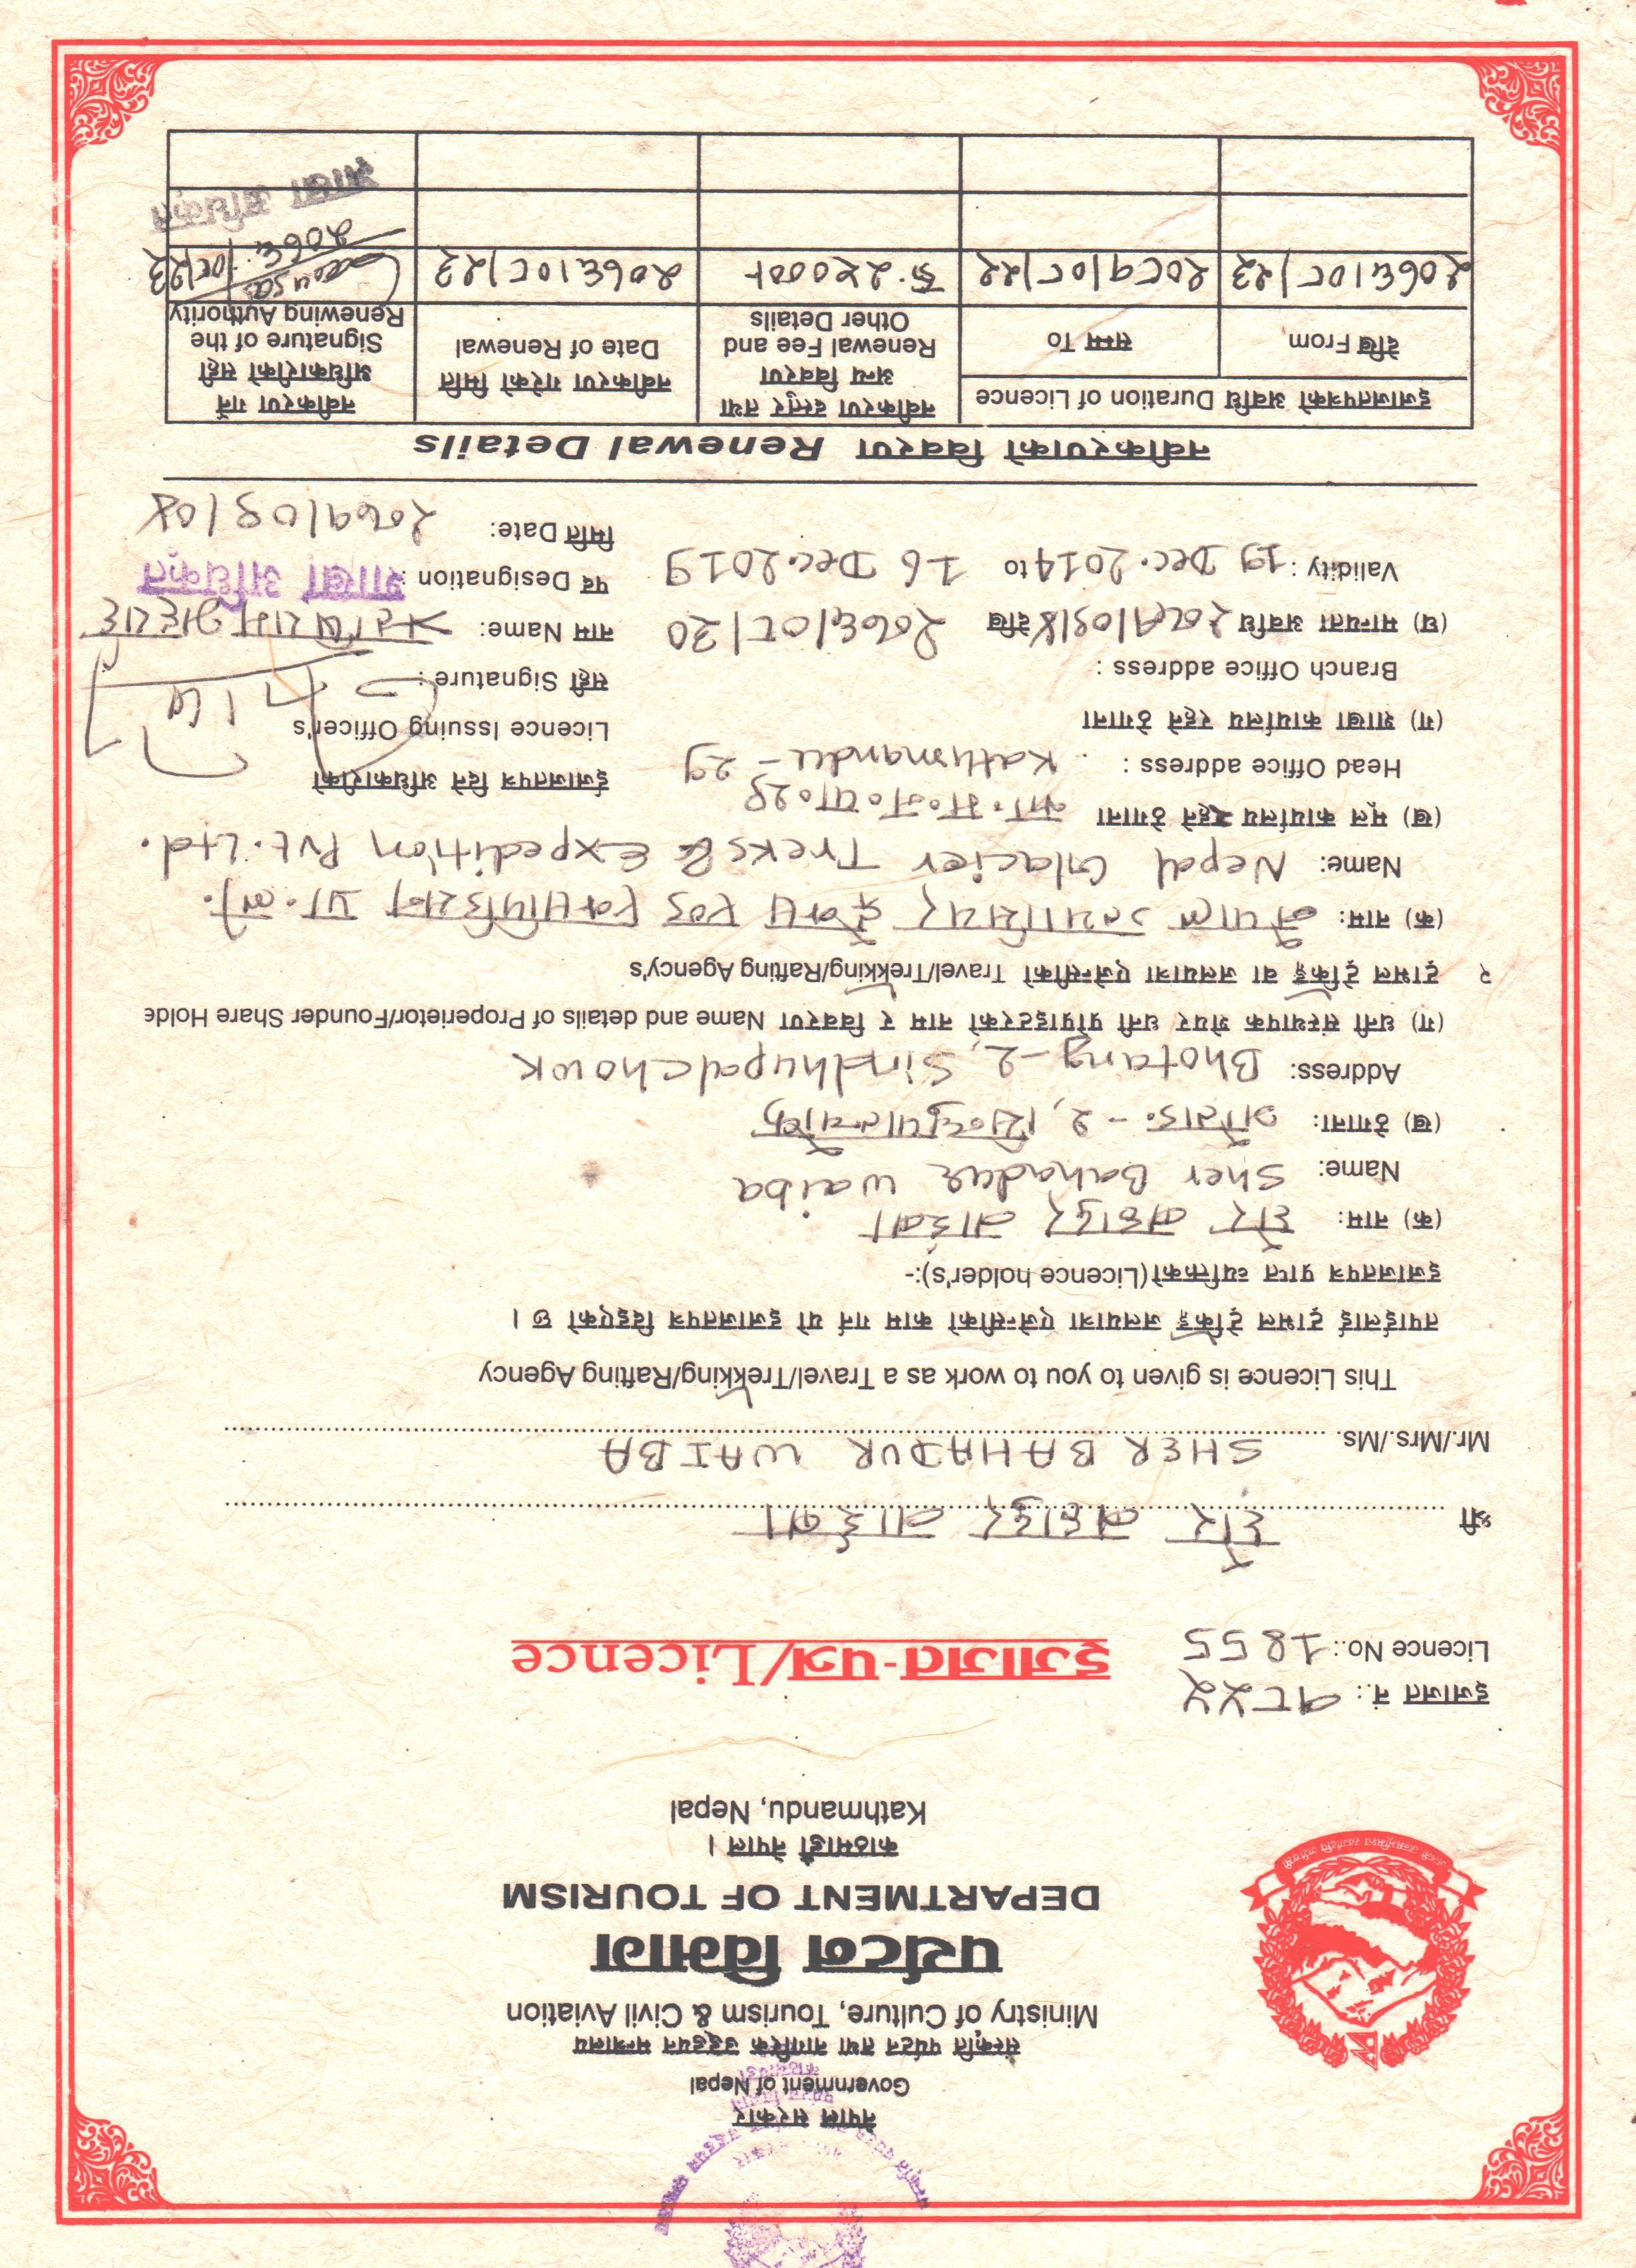 नेपाल सरकार
Government of Nepal
संस्कृति पर्यटन तथा नागरिक उड्डयन मन्त्रालय
Ministry of Culture, Tourism & Civil Aviation
पर्यटन विभाग
DEPARTMENT OF TOURISM
काठमाडौं नेपाल ।
Kathmandu, Nepal
इजाजत नं.: १८५५
Licence No.: 1855
इजाजत-पत्र/Licence
श्री शेर बहादुर वाईबा
Mr./Mrs./Ms. SHER BAHADUR WAIBA
This Licence is given to you to work as a Travel/Trekking/Rafting Agency
तपाईलाई ट्राभल ट्रेकिङ्ग जलयात्रा एजेन्सीको काम गर्न यो इजाजतपत्र दिइएको छ ।
इजाजतपत्र प्राप्त व्यक्तिको (Licence holder's):-
(क) नाम: शेर बहादुर वाईबा
Name: Sher Bahadur waiba
(ख) ठेगाना: भोताङ - २, सिन्धुपाल्चोक
Address: Bhotang-2, Sindhupalchowk
(ग) धनी संस्थापक शेयर धनी प्रोप्राइटरको नाम र विवरण Name and details of Properietor/Founder Share Holde
२ ट्राभल ट्रेकिङ्ग वा जलयात्रा एजेन्सीको Travel/Trekking/Rafting Agency's
(क) नाम: नेपाल ग्लासियर ट्रेक्स एण्ड एक्सपिडिसन प्रा. लि.
Name: Nepal Glacier Treks & Expedition Pvt. Ltd.
(ख) मूल कार्यालय रहने ठेगाना का.म.न.पा. २९
Head Office address : Kathmandu - 29
(ग) शाखा कार्यालय रहने ठेगाना
Branch Office address :
(घ) मान्यता अवधि २०७१/०९/४ देखि २०७६/०८/३०
Validity : 19 Dec. 2014 to 16 Dec. 2019
ईजाजतपत्र दिने अधिकारीको
Licence Issuing Officer's
सही Signature :
नाम Name:
पद Designation : शाखा अधिकृत
मिति Date: २०७१/०९/०४
नवीकरणको विवरण Renewal Details
इजाजतपत्रको अवधि Duration of Licence
देखि From
सम्म To
नवीकरण दस्तुर तथा
अन्य विवरण
Renewal Fee and
Other Details
नवीकरण गरेको मिति
Date of Renewal
नवीकरण गर्ने
अधिकारीको सही
Signature of the
Renewing Authority
२०७६/०८/२३
२०८१/०८/२२
रु. २५०००।-
२०७६/०८/२३
२०७६/०८/२३
शाखा अधिकृत